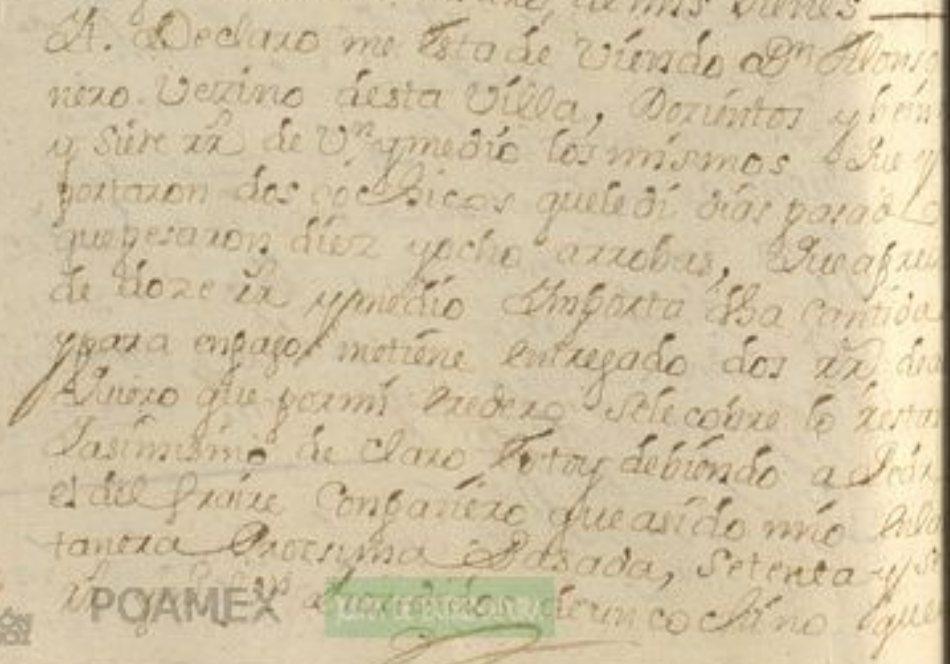 de mis vienes
It. Declaro me esta deviendo a Dn Alonso
nero. Vezino desta Villa, Dozientos y bein
y siete rr de Vn y medio los mismos que
portaron dos cochicos quele di dias pasado
que pesaron diez y ocho arrobas, que a
de doze rr y medio Importa dha cantida
y para en pago metiene entregado dos rr de
quiero que por mi eredero sele cobre lo restan
Iasimismo de claro estoy debiendo a
es del fraire Conpañero que asido mio
tanera Procsyma Pasada, Setenta y si
POAMEX de un cochino que